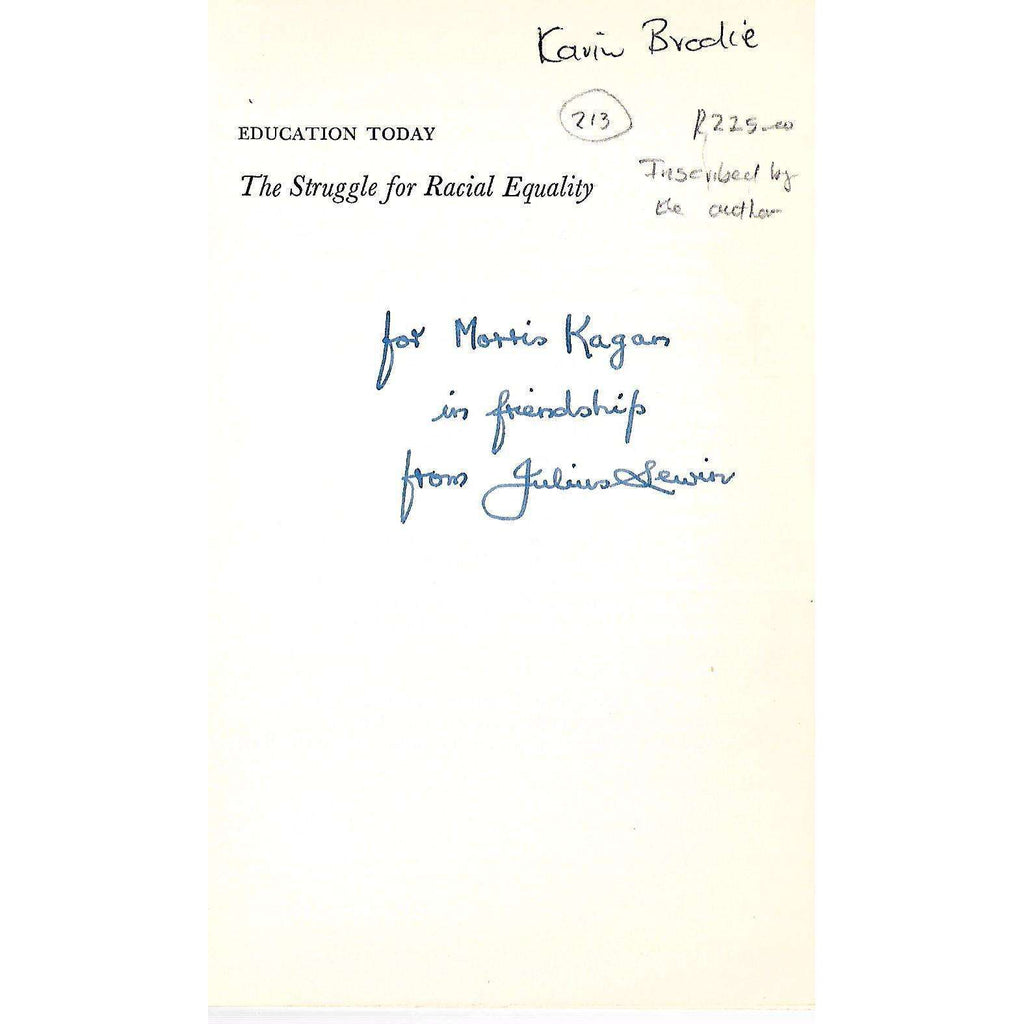 Karin Brodie
213
R225-00
EDUCATION TODAY
Inscribed by
the author
The Struggle for Racial Equality
for Morris Kagan
in friendship
from Julius Lewin